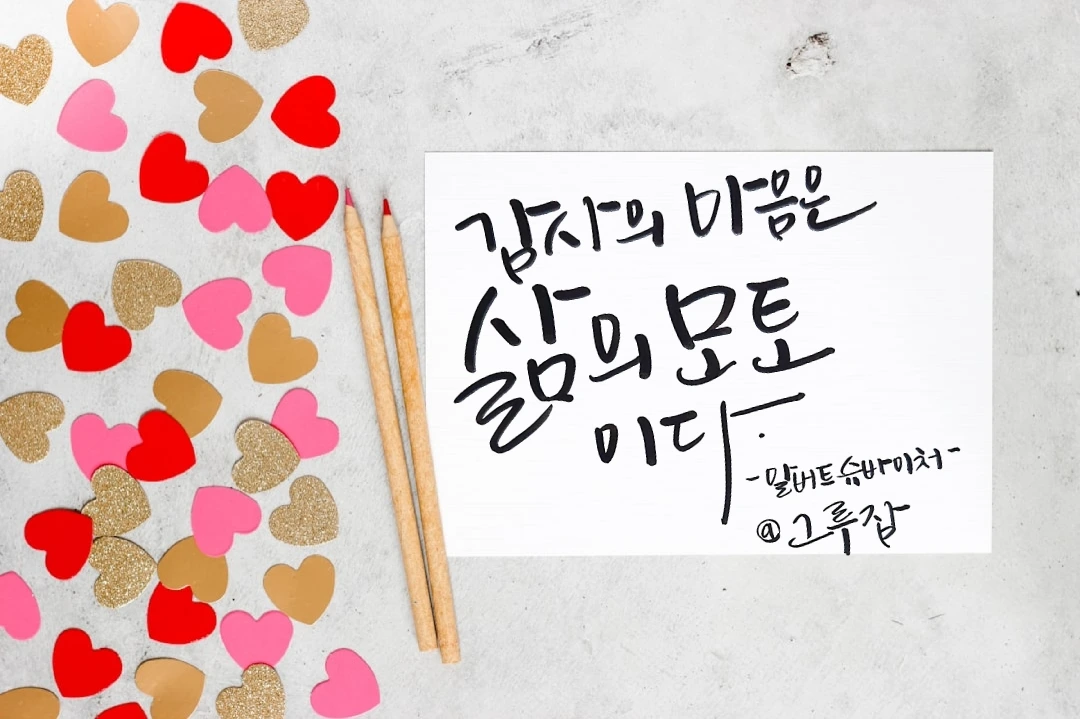 감사의 마음은
삶의 모토
이다.
-알버트슈바이처-
@그류잡